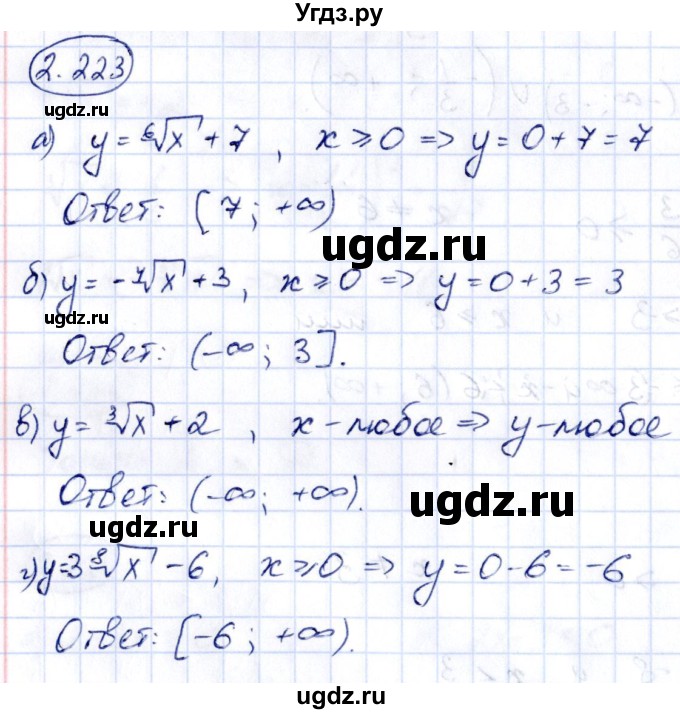 Угдз.ру
2.223
ugdz.ru
а) y = ⁶√x + 7 , x ⩾ 0 => y = 0 + 7 = 7
ugdz.ru
Ответ: [7; +∞)
ugdz.ru
б) y = -⁴√x + 3, x ⩾ 0 => y = 0 + 3 = 3
ugdz.ru
Ответ: (-∞; 3].
в) y = ³√x + 2 , x - любое => y - любое
Ответ: (-∞; +∞).
ugdz.ru
ugdz.ru
г) y=3 ⁸√x - 6, x ⩾ 0 => y = 0 - 6 = -6
Ответ: [-6; +∞).
ugdz.ru